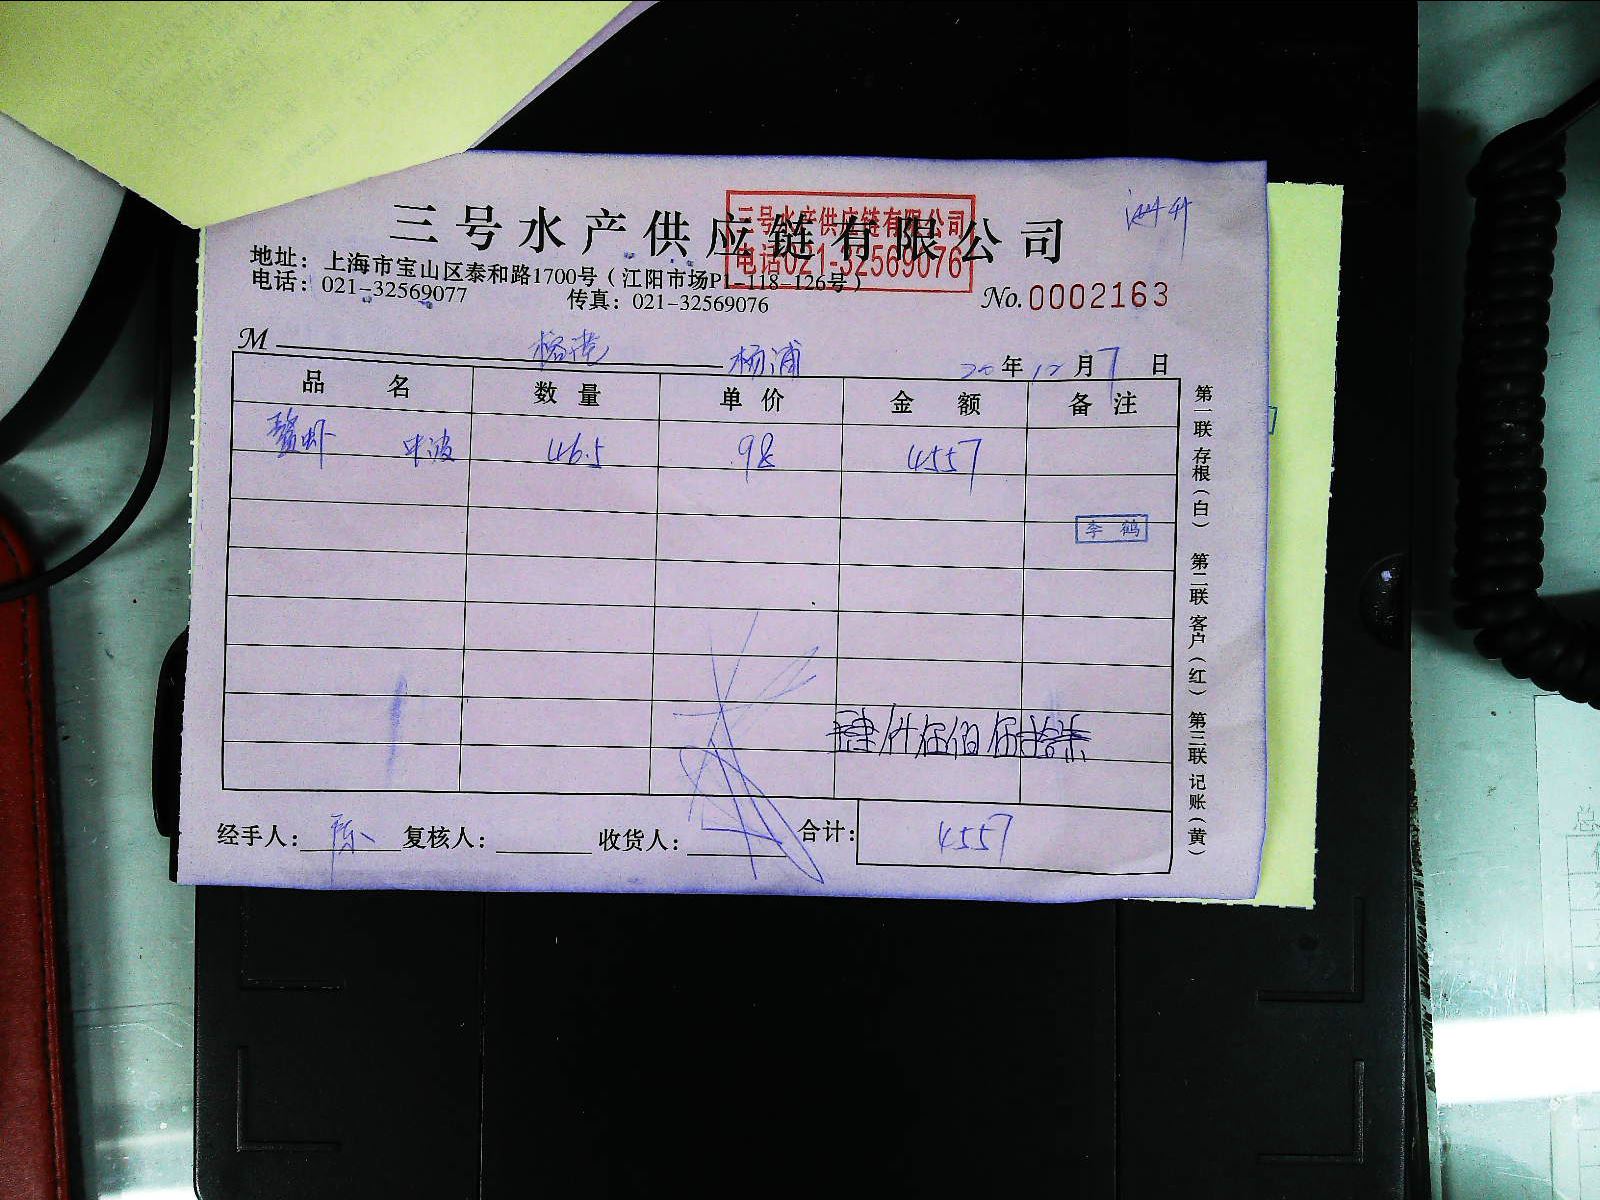 三号水产供应链有限公司
三号水产供应链有限公司
电话021-32569076
地址：上海市宝山区泰和路1700号（江阳市场P1-118-126号）
电话：021-32569077 传真：021-32569076
No.0002163
M 杨浦 20年12月7日
品名 数量 单价 金额 备注
鳌虾 46.5 98 4557
李鹤
肆仟伍佰伍拾柒
经手人：陈 复核人： 收货人： 合计：4557
第一联 存根（白） 第二联 客户（红） 第三联 记账（黄）